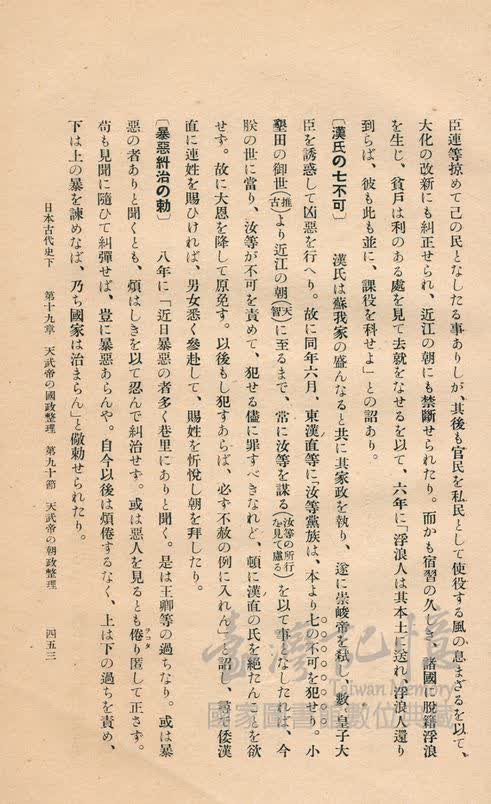 臣連等掠めて己の民となしたる事ありしが、其後も官民を私民として使役する風の息まざるを以て、
大化の改新にも糾正せられ、近江の朝にも禁斷せられたり。而かも宿習の久しき、諸國に脫籍浮浪
を生じ、貧戸は利のある處を見て去就をなせるを以て、六年に「浮浪人は其本土に送れ、浮浪人還り
到らば、彼も此も並に、課役を科せよ」との詔あり。
〔漢氏の七不可〕 漢氏は蘇我家の盛んなると共に其家政を執り、遂に崇峻帝を弑し、數〻皇子大
臣を誘惑して凶惡を行へり。故に同年六月、東漢直等に汝等黨族は、本より七の不可を犯せり。小
墾田の御世(推古)より近江の朝(天智)に至るまで、常に汝等を謀る(汝等の所行を見て慮る)を以て事となしたれば、今
朕の世に當り、汝等が不可を責めて、犯せる儘に罪すべきなれど、頓に漢直の氏を絶たんことを欲
せず。故に大恩を降して原免す。以後もし犯すあらば、必ず不赦の例に入れん」と詔し、尋で倭漢
直に連姓を賜ひければ、男女悉く參赴して、賜姓を忻悅し朝を拜したり。
〔暴惡糾治の勅〕 八年に「近日暴惡の者多く巷里にありと聞く。是は王卿等の過ちなり。或は暴
惡の者ありと聞くとも、煩はしきを以て忍んで糾治せず。或は惡人を見るとも倦り匿して正さず。
苟も見聞に隨ひて糾彈せば、豈に暴惡あらんや。自今以後は煩倦するなく、上は下の過ちを責め、
下は上の暴を諫めなば、乃ち國家は治まらん」と儆勅せられたり。
日本古代史下 第十九章 天武帝の國政整理 第九十節 天武帝の朝政整理 四五三
臺灣記憶
Taiwan Memory
國家圖書館數位典藏